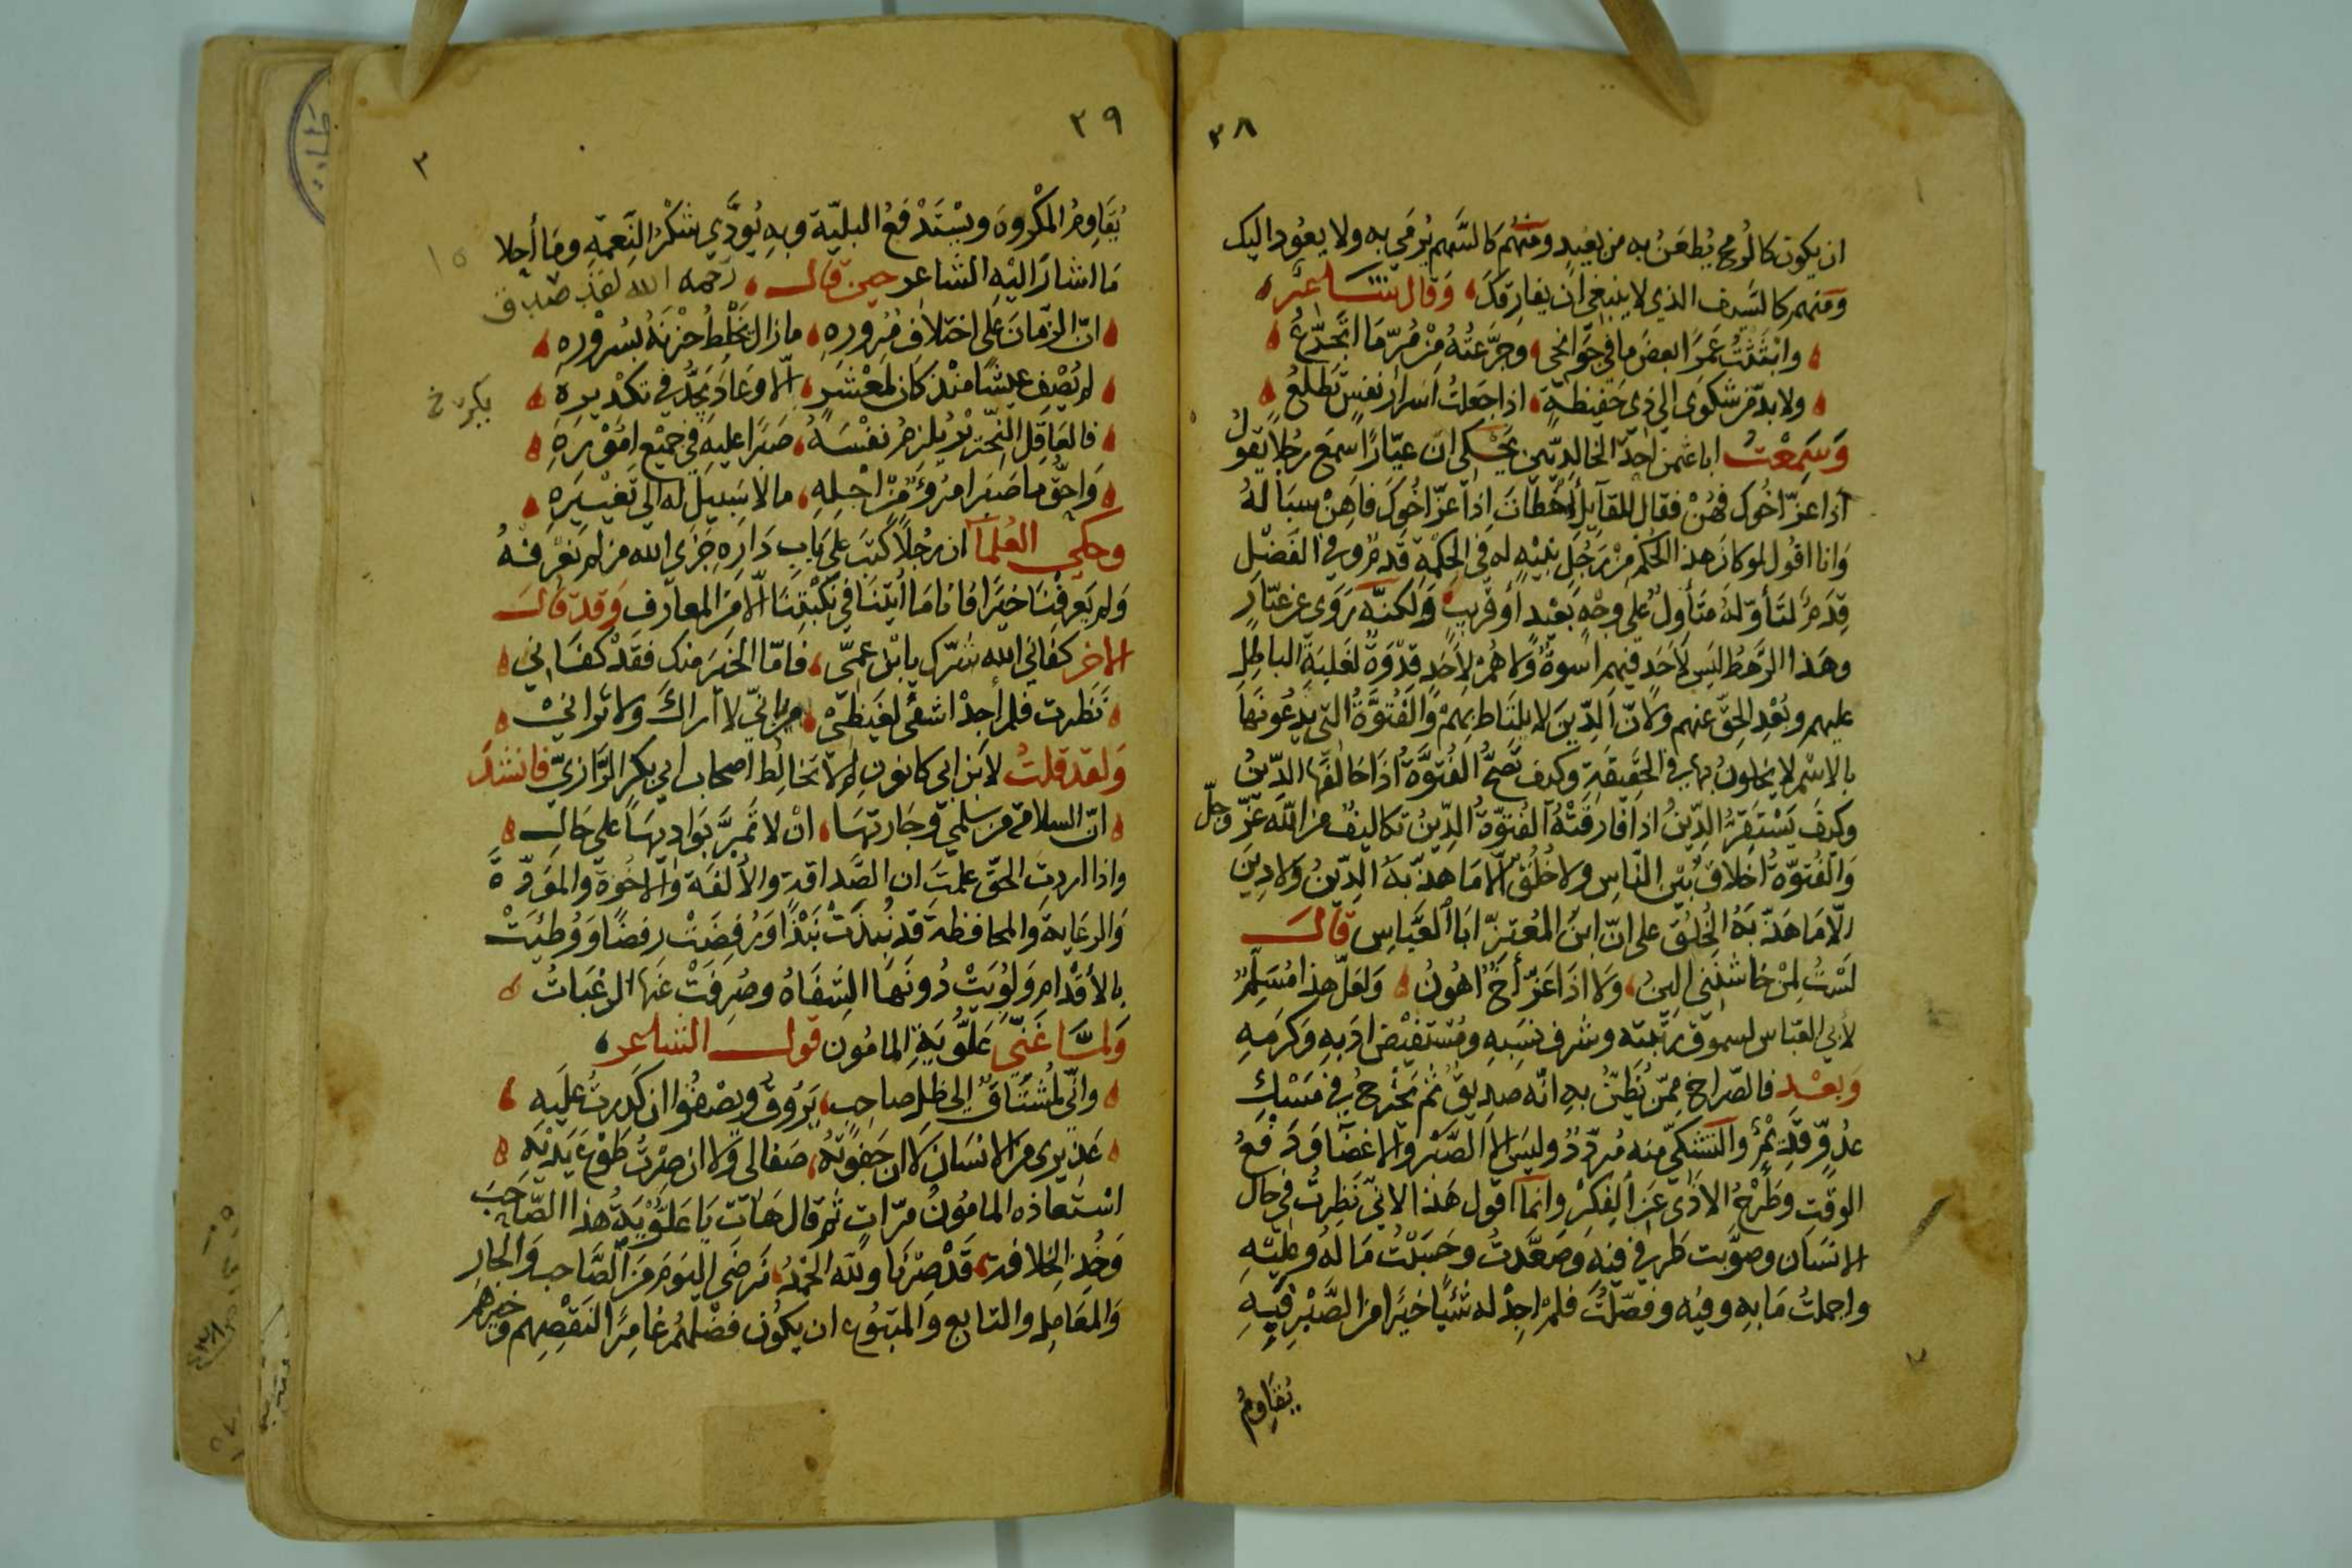 ٣٨
ان يكون كالرُمح يُطعَنُ به من بعيد ومنهم كالسَّهم يُرمَي به ولا يعود اليك
ومنهم كالسَّيف الذي لا ينبغي ان يفارقك وقال شاعر
وابْثَثْتُ عَمرًا بعضَ ما في جَوَانحي وجَرَّعتُهُ مِنْ مُرِّ مَا اتَجَرَّعُ
ولا بدّ من شكوَى الي ذي حَفيظةٍ اذا جَعلتْ اسَرارُ نفسٍ تَطَلَّعُ
وَسَمِعْتُ اباعثمن احَدَ الخالديّين يَحْكي انّ عيّارًا سمع رجُلاً يَقولُ
اذا عزّ اخُوك فهُنْ فقال للقآيل أخطاتَ اِذا عزّ اخُوكَ فاهِنْ سبالهُ
وَانا اقول لو كانَ هذا الحُكم مِنْ رَجُلٍ نبيْهٍ له في الحِكمْةِ قَدمٌ وفي الفَضْل
قِدَمٌ لتَأوّلهُ متَأولٌ على وجْهٍ بَعْيدٍ أو قريبٍ وَلكنَّه رَوَي عن عيّارٍ
وهَذا الرَّهطُ ليَس لأَحَد فيهم اسوةٌ وَلا هُمْ لأَحَدٍ قدْوَةٌ لغَلبَةِ الباطِلِ
عليهم وبُعْدِ الحقّ عنهم ولأنّ الدِّينَ لا يلتَاط بهمْ وَالفُتوَّةُ التي يَدعُونَهَا
بالاسْم لا يخلون بها في الحَقيقَة وكيف تَصحُّ الفُتوَّةُ اذَا خالَفَها الدّينُ
وكيفَ يَسْتَقِرّ الدّينُ اذا فَارَقَتْهُ الفُتوّةُ الدِّينُ تكاليفُ من اللَّه عزّ وجلّ
وَالفُتوّةُ اخلاقٌ بَيْن النَّاس ولا خُلُقٌ الّا مَا هذّبَهُ الدّينُ وَلا دِينَ
الّا مَا هَذّبَهُ الخُلقُ على انّ ابنَ المُعتزّ ابَا العَبَّاسِ قالَ
لَسْتُ لِمَنْ خَاشننِي الينُ وَلا اذَا عَزّ أخٌ اهُونُ وَلَعَلّ هذا مُسَلِّمٌ
لأبي العَبّاس لسموق رتبته وشرف نسَبِهِ ومُستَفيْض ادَبِهِ وكَرَمِهِ
وَبَعْد فالصّراخ مِمّن يُظَنُّ به انّه صديقٌ ثم يَخْرجُ في مَسْك
عدُوٍّ قديْمٌ والتشكّي منه مُردّدٌ وليس الا الصَّبْرُ والاغضَآ وَدَفعُ
الوقت وطَرْحُ الأذَى عَن الفِكرْ وانمآ اقول هَذا لأنّي نَظرتُ في حَال
الانسَان وصوّبت طرفي فيه وَصَعَّدتُ وحَسَبْتُ مَا لهُ وعَليْه
واجملتُ مَا به وفيه وفصّلتُ فلمْ اجِدْ له شَيْأً خيرًا من الصَّبْر فَبِهِ
يُقاوِمُ
٣٩
٣
يُقَاوِمُ المَكْروهَ ويُسْتَدْفَعُ البليّة وبهِ يُؤدَّي شكْرُ النِّعمَةِ وَمَا أحلا
مَا اشَارَ اليْهِ الشّاعر حين قَال رحمه الله لقد صدق
انّ الزّمَانَ عَلى اختلاف مُرُورِهِ ما زالَ يَخْلِطُ حزْنَهُ بسُروْرِهِ
لم يُصْفِ عيشًا منْذ كَانَ لمَعْشَرٍ الّا وعَادَ يَجِدُّ في تكْديرهِ
بكرخ
فالعَاقِل النّحريْرُ يُلزمُ نفْسَهُ صَبَرا عليهِ في جميْع امُوْرِهِ
وَاحَقُّ ما صَبَر امرُؤٌ مِنْ اجْلِهِ ما لا سَبيلَ له الى تَغْييرهِ
وحكي العُلمآ ان رجُلاً كَتبَ عَلى بَابِ دَارِهِ جَزَى الله من لم نعرفْهُ
وَلم يَعرفْنَا خَيَرًا فانَا مَا أتَيْنَا في نَكبْتِنَا الّا مِنَ المعَارف وَقد قالَ
الاخر كفَاني الله شَرّك يا ابْنَ عَمّي فامّا الخيرَ منكَ فقَدْ كفَاني
نَظَرت فلم أجدْ اشفَى لغَيْظي من انّي لا اراكَ ولا تراني
ولقد قلتُ لأبن ابي كانون لم لا تخَالِط اصحاب ابي بكر الرَّازيّ فانشد
انّ السلامَةَ من سَلمي وجَارتهَا انْ لا تمَرَّ بوَاديهَا على حَال
واذا اردت الحقّ علمتَ ان الصَّداقَة والأُلْفَة وَالاخُوّة والمَوَدّة
وَالرعَاية وَالمحافظَة قد نُبذَتْ نَبْذًا وَرُفِضَتْ رَفضًا وَوُطئتْ
بالأَقْدامِ وَلُوِيَتْ دُونَهَا الشِّفَاهُ وصُرِفَتْ عَنها الرغَبَاتُ
وَلمّا غَنّي عَلَّوَيْه المامُون قول الشاعر
وانّي لمُشتَاقٌ الى ظِلّ صاحِبٍ يَرُوقُ ويَصْفُوا ان كَدرتُ عليَه
عَذيري من الانسَان لا ان جَفوْتُهُ صَفا لي وَلا ان صِرْتُ طوْعَ يَديْهِ
اسْتَعاذه المامُونُ مرّاتٍ ثم قال هَات يا عَلوَّيْه هذا الصّاحِبَ
وَخُذِ الخِلافة قَدْ صِرْنَا وللَّه الحَمْدُ نَرضَى اليَومَ من الصَّاحب وَالجَار
وَالمعَامِل والتابع وَالمتبُوع ان يكُونَ فضْلهُمْ غامِرًا لنَقْصِهم وخيَرهُم